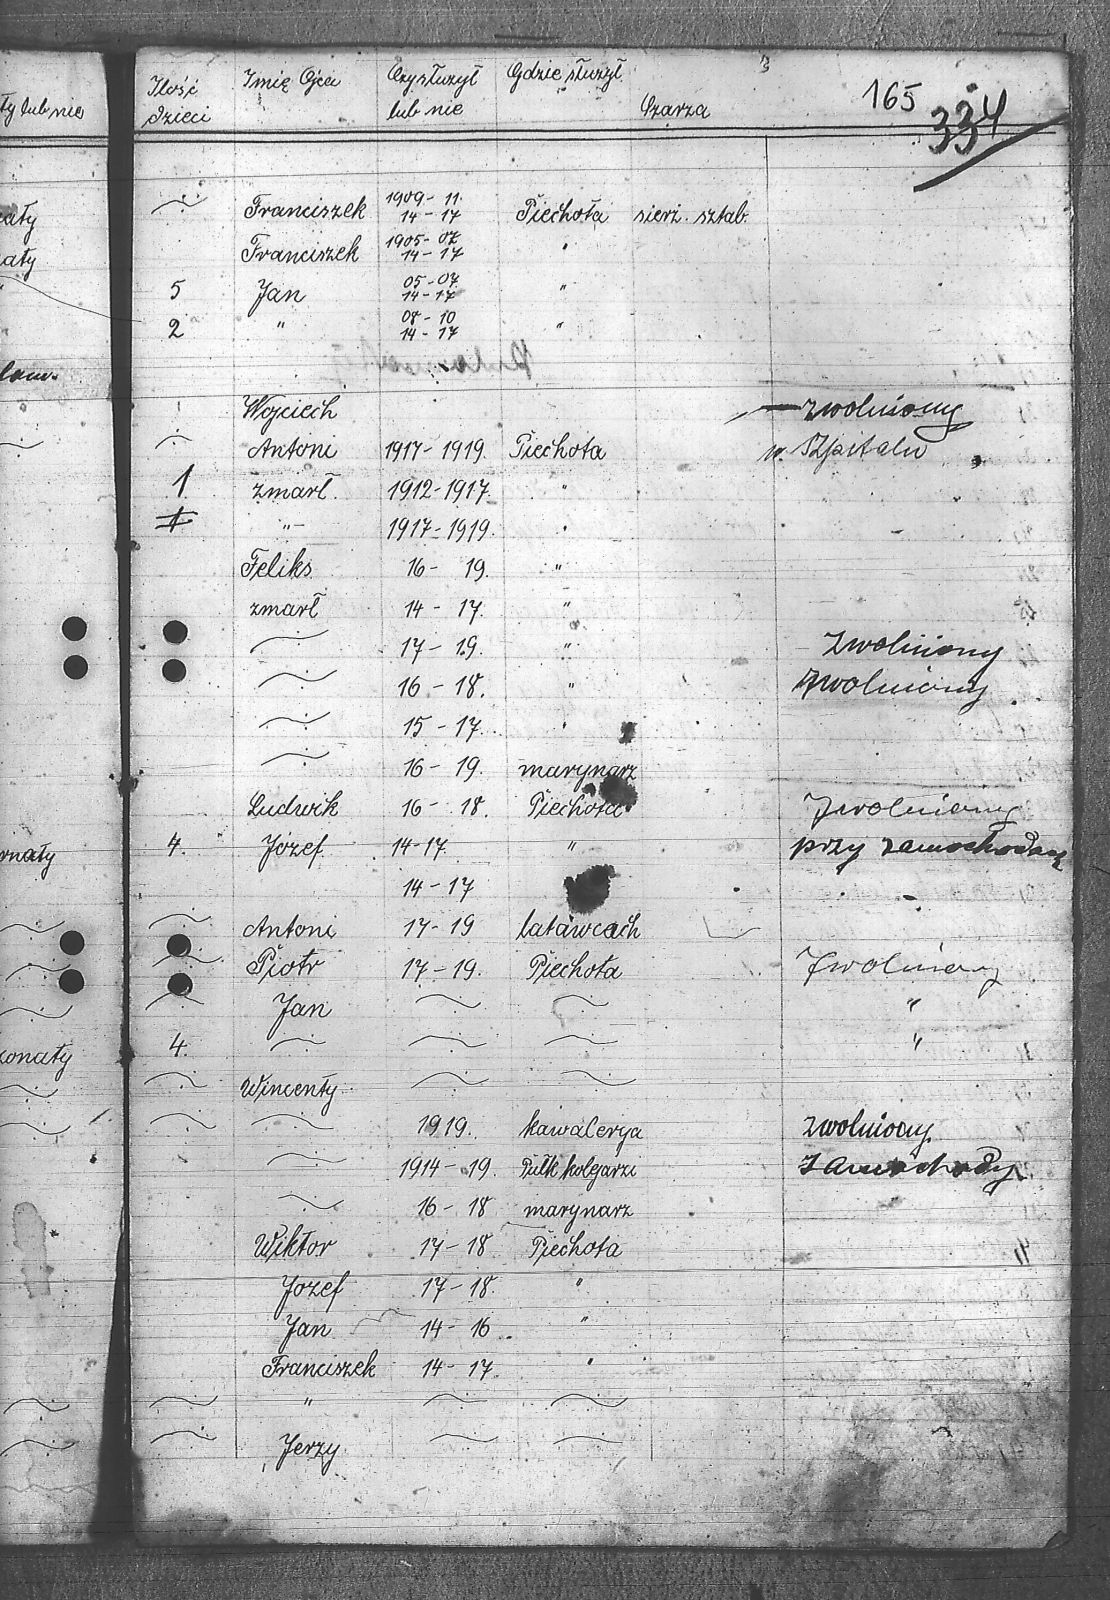 ły lub nie Ilość dzieci Imię Ojca Czy służył lub nie Gdzie służył Czarza 165 334
aty ~ Franciszek 1909 - 11. 14 - 17 Piechota sierż. sztab.
aty Franciszek 1905 - 07 14 - 17 "
" 5 Jan 05 - 07 14 - 17 "
2 " 08 - 10 14 - 17 "
Wojciech zwolniony
~ ~ Antoni 1917 - 1919 Piechota w. Szpitalu
1 zmarł. 1912 - 1917. "
1 " 1917 - 1919. " -
Feliks 16 - 19. "
zmarł 14 - 17. "
~ 17 - 19. " - Zwolniony
~ 16 - 18. " Zwolniony
~ 15 - 17. "
~ 16 - 19. marynarz
Ludwik 16 - 18. Piechota Zwolniony
onaty 4. Józef 14 - 17. " przy samochodach
14 - 17 "
~ ~ Antoni 17 - 19 latawcach
~ ~ Piotr 17 - 19. Piechota Zwolniony
~ ~ Jan ~ ~ "
żonaty 4. ~ ~ ~ "
~ ~ Wincenty ~ ~
~ ~ ~ 1919. kawalerya zwolniony
~ 1914 - 19. Pułk kolejarzi Samochody
~ 16 - 18 marynarz
Wiktor 17 - 18 Piechota
Józef 17 - 18. "
Jan 14 - 16 "
Franciszek 14 - 17. "
~ ~ " ~ ~
~ ~ Jerzy ~ ~